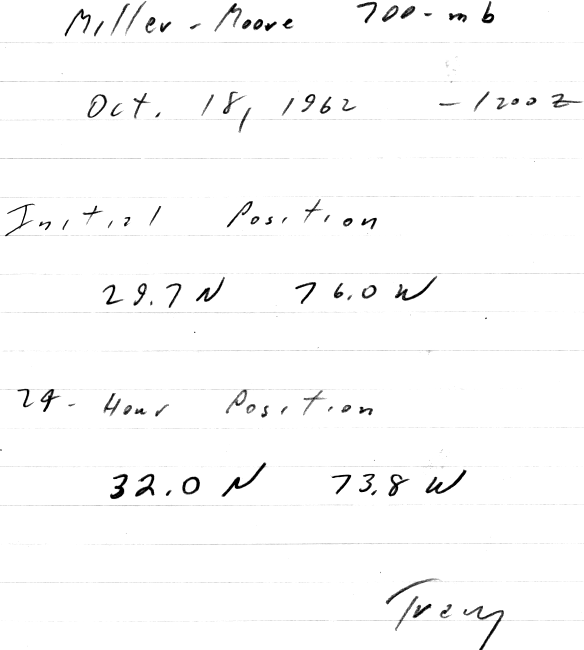 Miller-Moore 700-mb
Oct. 18, 1962 -1200Z
Initial Position
29.7 N 76.0 W
24-Hour Position
32.0 N 73.8 W
Tracy